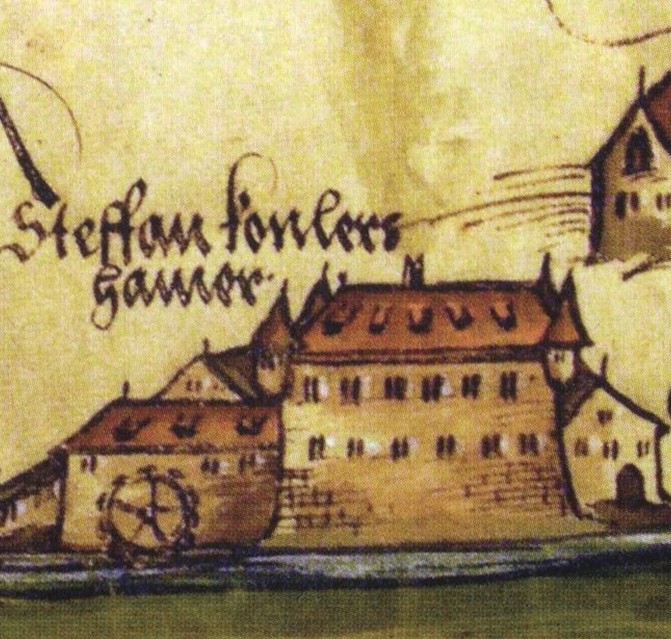 Steffan konlers
hamer